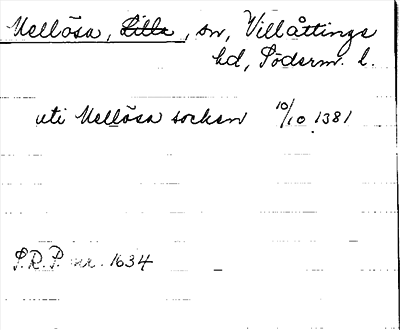 Mellösa, Lilla, sn, Villåttinge
hd, Söderm. l.
uti Mellösa socken 10/10 1381
S.R.P. nr. 1634